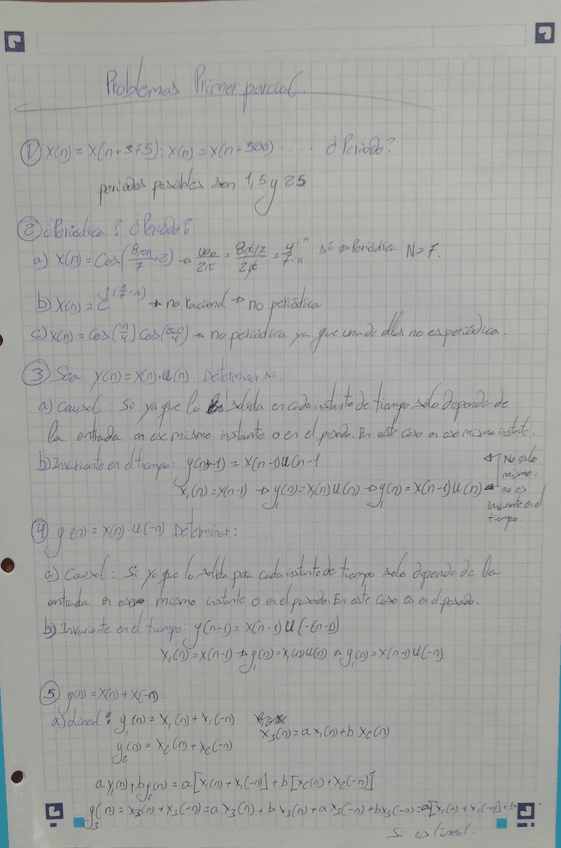 Problemas Primer parcial.
① x(n) = x(n+375); x(n) = x(n+300) .... ¿Periodo?
periodos posibles son 1, 5 y 25
② ¿Periódica? ¿Periodo?
a) x(n) = cos(8πn/7 + 2) → ω₀/2π = 8π/7/2π = 4/7 si es Periódica N=7.
b) → no racional → no periódica
c) x(n) = cos(n/4) cos(πn/4) → no periódica ya que una de ellas no es periódica.
③ Sea y(n) = x(n)·u(n). Determinar si:
a) Causal: Si ya que la salida en cada instante de tiempo solo depende de
la entrada en ese mismo instante o en el pasado. En este caso en ese mismo instante.
b) Invariante en el tiempo: y(n-1) = x(n-1)u(n-1
x₁(n) = x(n-1) → y₁(n) = x₁(n)u(n) → y₁(n) = x(n-1)u(n)
No es lo
mismo:
no es
invariante en el
tiempo.
④ y(n) = x(n)·u(-n) Determinar:
a) Causal: Si ya que la salida para cada instante de tiempo solo depende de la
entrada en ese mismo instante o en el pasado. En este caso es en el pasado.
b) Invariante en el tiempo: y(n-1) = x(n-1)u(-(n-1))
x₁(n) = x(n-1) → y₁(n) = x₁(n)u(n) → y₁(n) = x(n-1)u(-n)
⑤ y(n) = x(n) + x(-n)
a) Lineal: y₁(n) = x₁(n) + x₁(-n)
y₂(n) = x₂(n) + x₂(-n)
x₃(n) = a x₁(n) + b x₂(n)
a y₁(n) + b y₂(n) = a[x₁(n) + x₁(-n)] + b[x₂(n) + x₂(-n)]
y₃(n) = x₃(n) + x₃(-n) = a x₁(n) + b x₂(n) + a x₁(-n) + b x₂(-n) = a[x₁(n) + x₁(-n)] + b
Si es lineal.